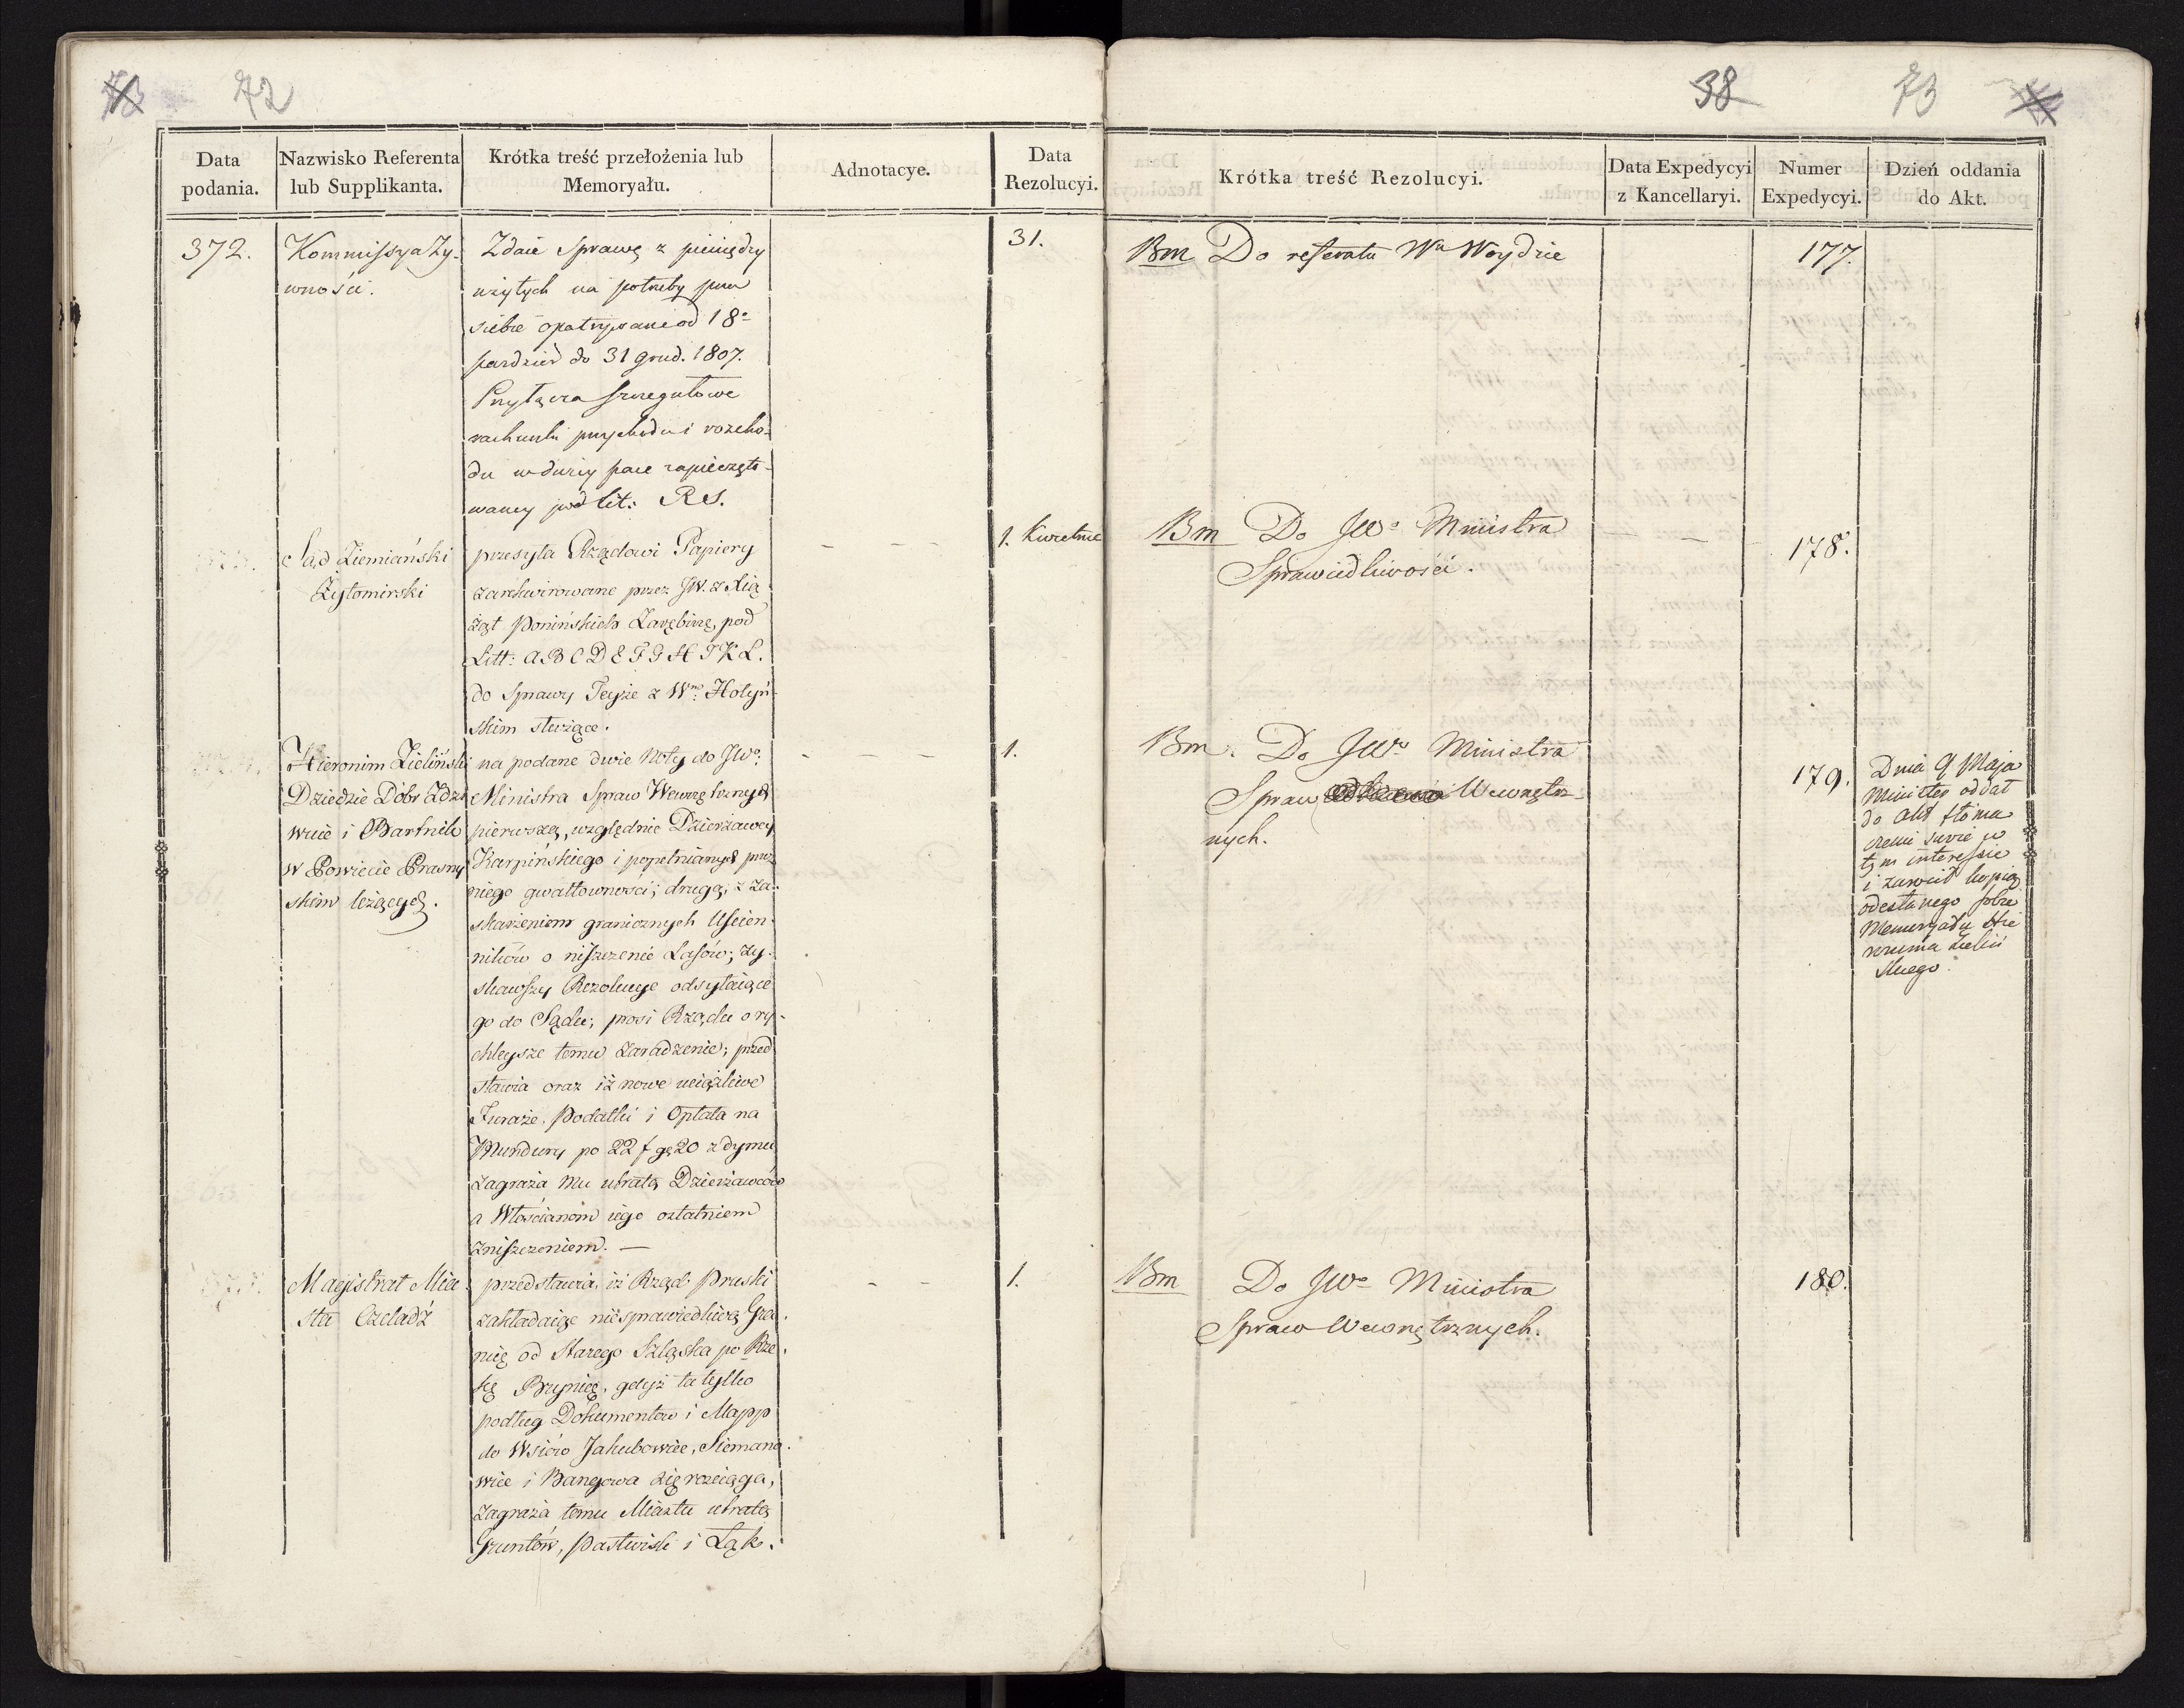 72
38
73
Data podania.
Nazwisko Referenta lub Supplikanta.
Krótka treść przełożenia lub Memoryału.
Adnotacye.
Data Rezolucyi.
Krótka treść Rezolucyi.
Data Expedycyi z Kancellaryi.
Numer Expedycyi.
Dzień oddania do Akt.
372.
Kommissya Ży-
wności.
Zdaie Sprawę z pieniędzy
użytych na potrzeby przez
siebie opatrywane od 18°
paździer do 31 grud. 1807.
Przyłącza szczegułowe
rachunki przychodu i rozcho-
du w dużey pace zapieczęto-
waney pod lit: RS.
31.
Bm Do referatu Wu Woydzie
177.
Sąd Ziemiański
Żytomirski
przesyła Rządowi Papiery
zarchiwirowane przez JW. z Xią
żąt Ponińskich Zarębinę, pod
Litt: A B C D E F G H I K L.
do Sprawy Teyże z Wm: Hołyń-
skim służące.
— — —
1. Kwietnia
Bm Do JWo Ministra
Sprawiedliwości.
— —
178.
Hieronim Zieliński
Dziedzic Dóbr Zdzi
wuie i Bartnik
w Powiecie Prasny
skim leżących.
na podane dwie Noty do JWo:
Ministra Spraw Wewnętrznych
pierwszą, względnie Dzierżawcy
Karpińskiego i popełnianych prze
niego gwałtowności; drugą; z za-
skarżeniem granicznych Uscien-
ników o niszczenie Lasów; zy-
skawszy Rezolucye odsyłaiące
go do Sądu; prosi Rządu o ry-
chleysze temu zaradzenie; przed
stawia oraz iż nowe uciążliwe
Furaże, Podatki i Opłata na
Mundury po 22 f gr 20 z dymu
zagraża mu utratą Dzierżawców
a Włościanom iego ostatniem
zniszczeniem. —
— — —
1.
Bm. Do JWo Ministra
Spraw Wewnętrz-
nych.
179.
Dnia 9 Maja
Minister oddał
do akt
w
tym interessie
i zwrócił kopią
odesłanego sobie
Memoryału Hie
ronima Zieliń
skiego.
Magistrat Mia
sta Czeladź
przedstawia, iż Rząd Pruski
zakładaiąc niesprawiedliwą Gra-
nicę od Starego Szląska po Rze-
kę Brynicę, gdyż ta tylko
podług Dokumentów i Mapp
do Wsiów Jakubowice, Siemano-
wice i Bangowa się rozciąga,
zagraża temu Miastu utratą
Gruntów, Pastwisk i Łąk.
— —
1.
Bm Do JWo Ministra
Spraw Wewnętrznych.
180.